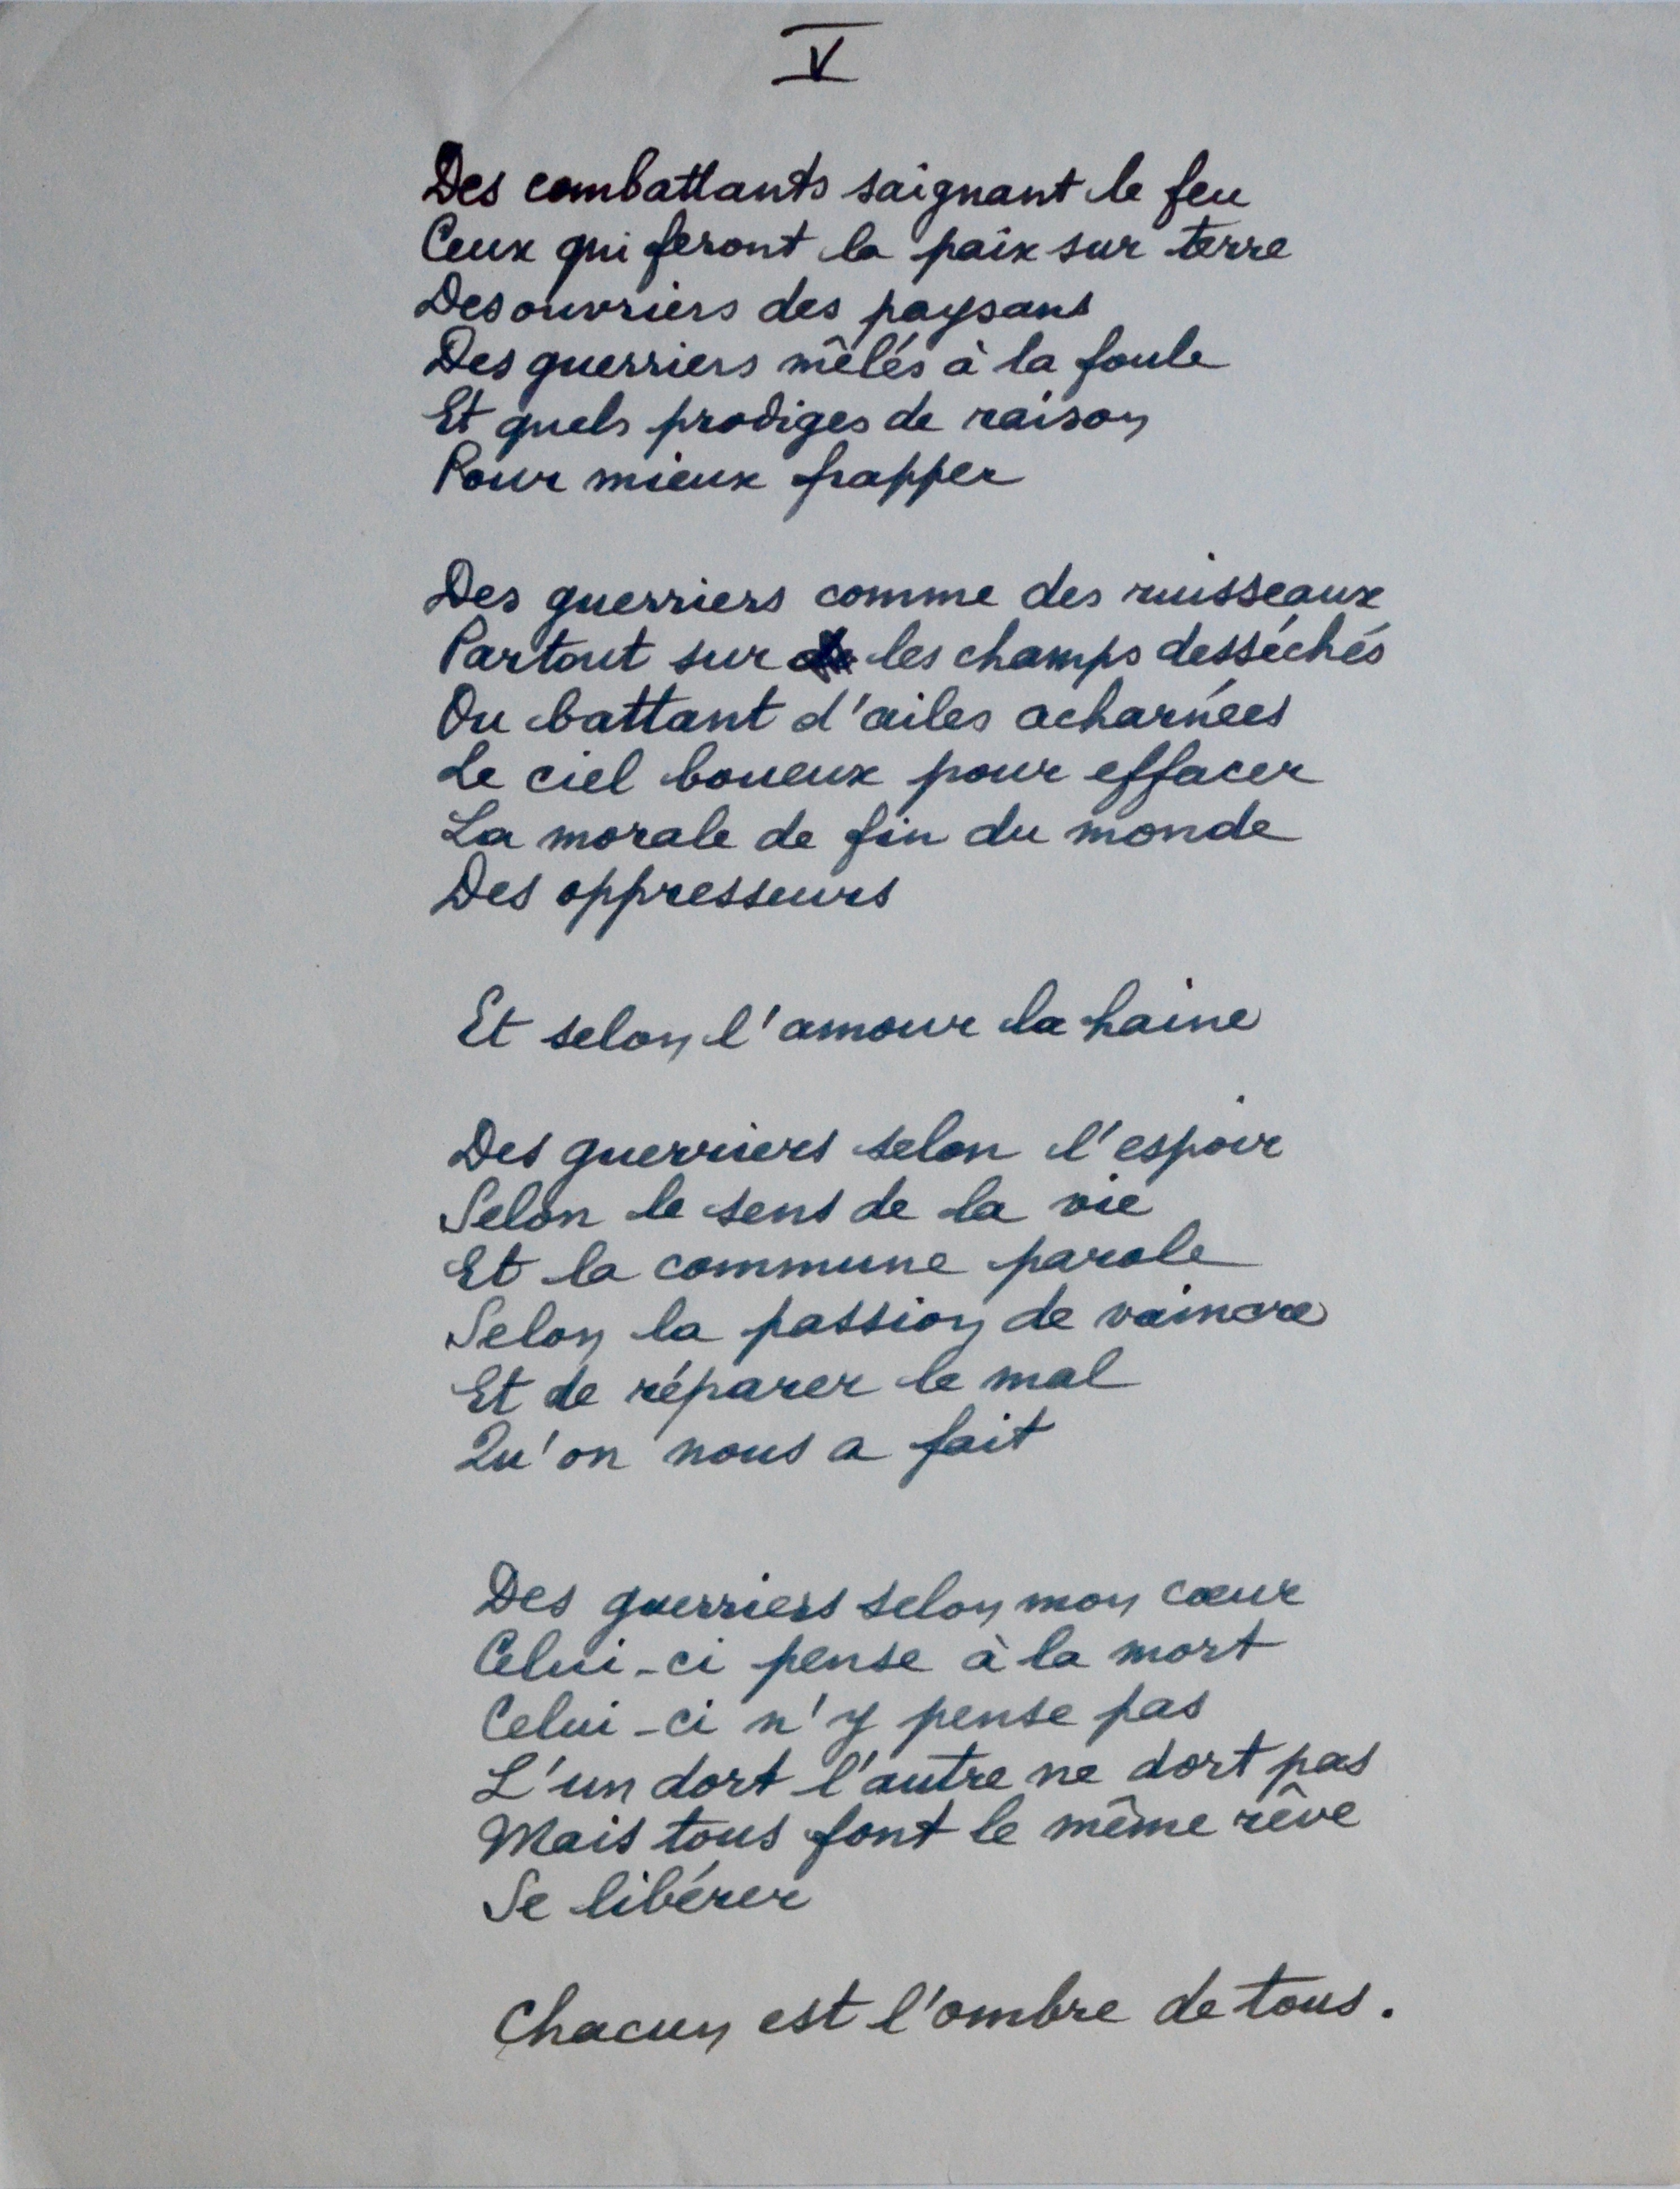 V
Des combattants saignant le feu
Ceux qui feront la paix sur terre
Des ouvriers des paysans
Des guerriers mêlés à la foule
Et quels prodiges de raison
Pour mieux frapper
Des guerriers comme des ruisseaux
Partout sur les champs desséchés
Ou battant d'ailes acharnées
Le ciel boueux pour effacer
La morale de fin du monde
Des oppresseurs
Et selon l'amour la haine
Des guerriers selon l'espoir
Selon le sens de la vie
Et la commune parole
Selon la passion de vaincre
Et de réparer le mal
Qu'on nous a fait
Des guerriers selon mon cœur
Celui-ci pense à la mort
Celui-ci n'y pense pas
L'un dort l'autre ne dort pas
Mais tous font le même rêve
Se libérer
Chacun est l'ombre de tous.